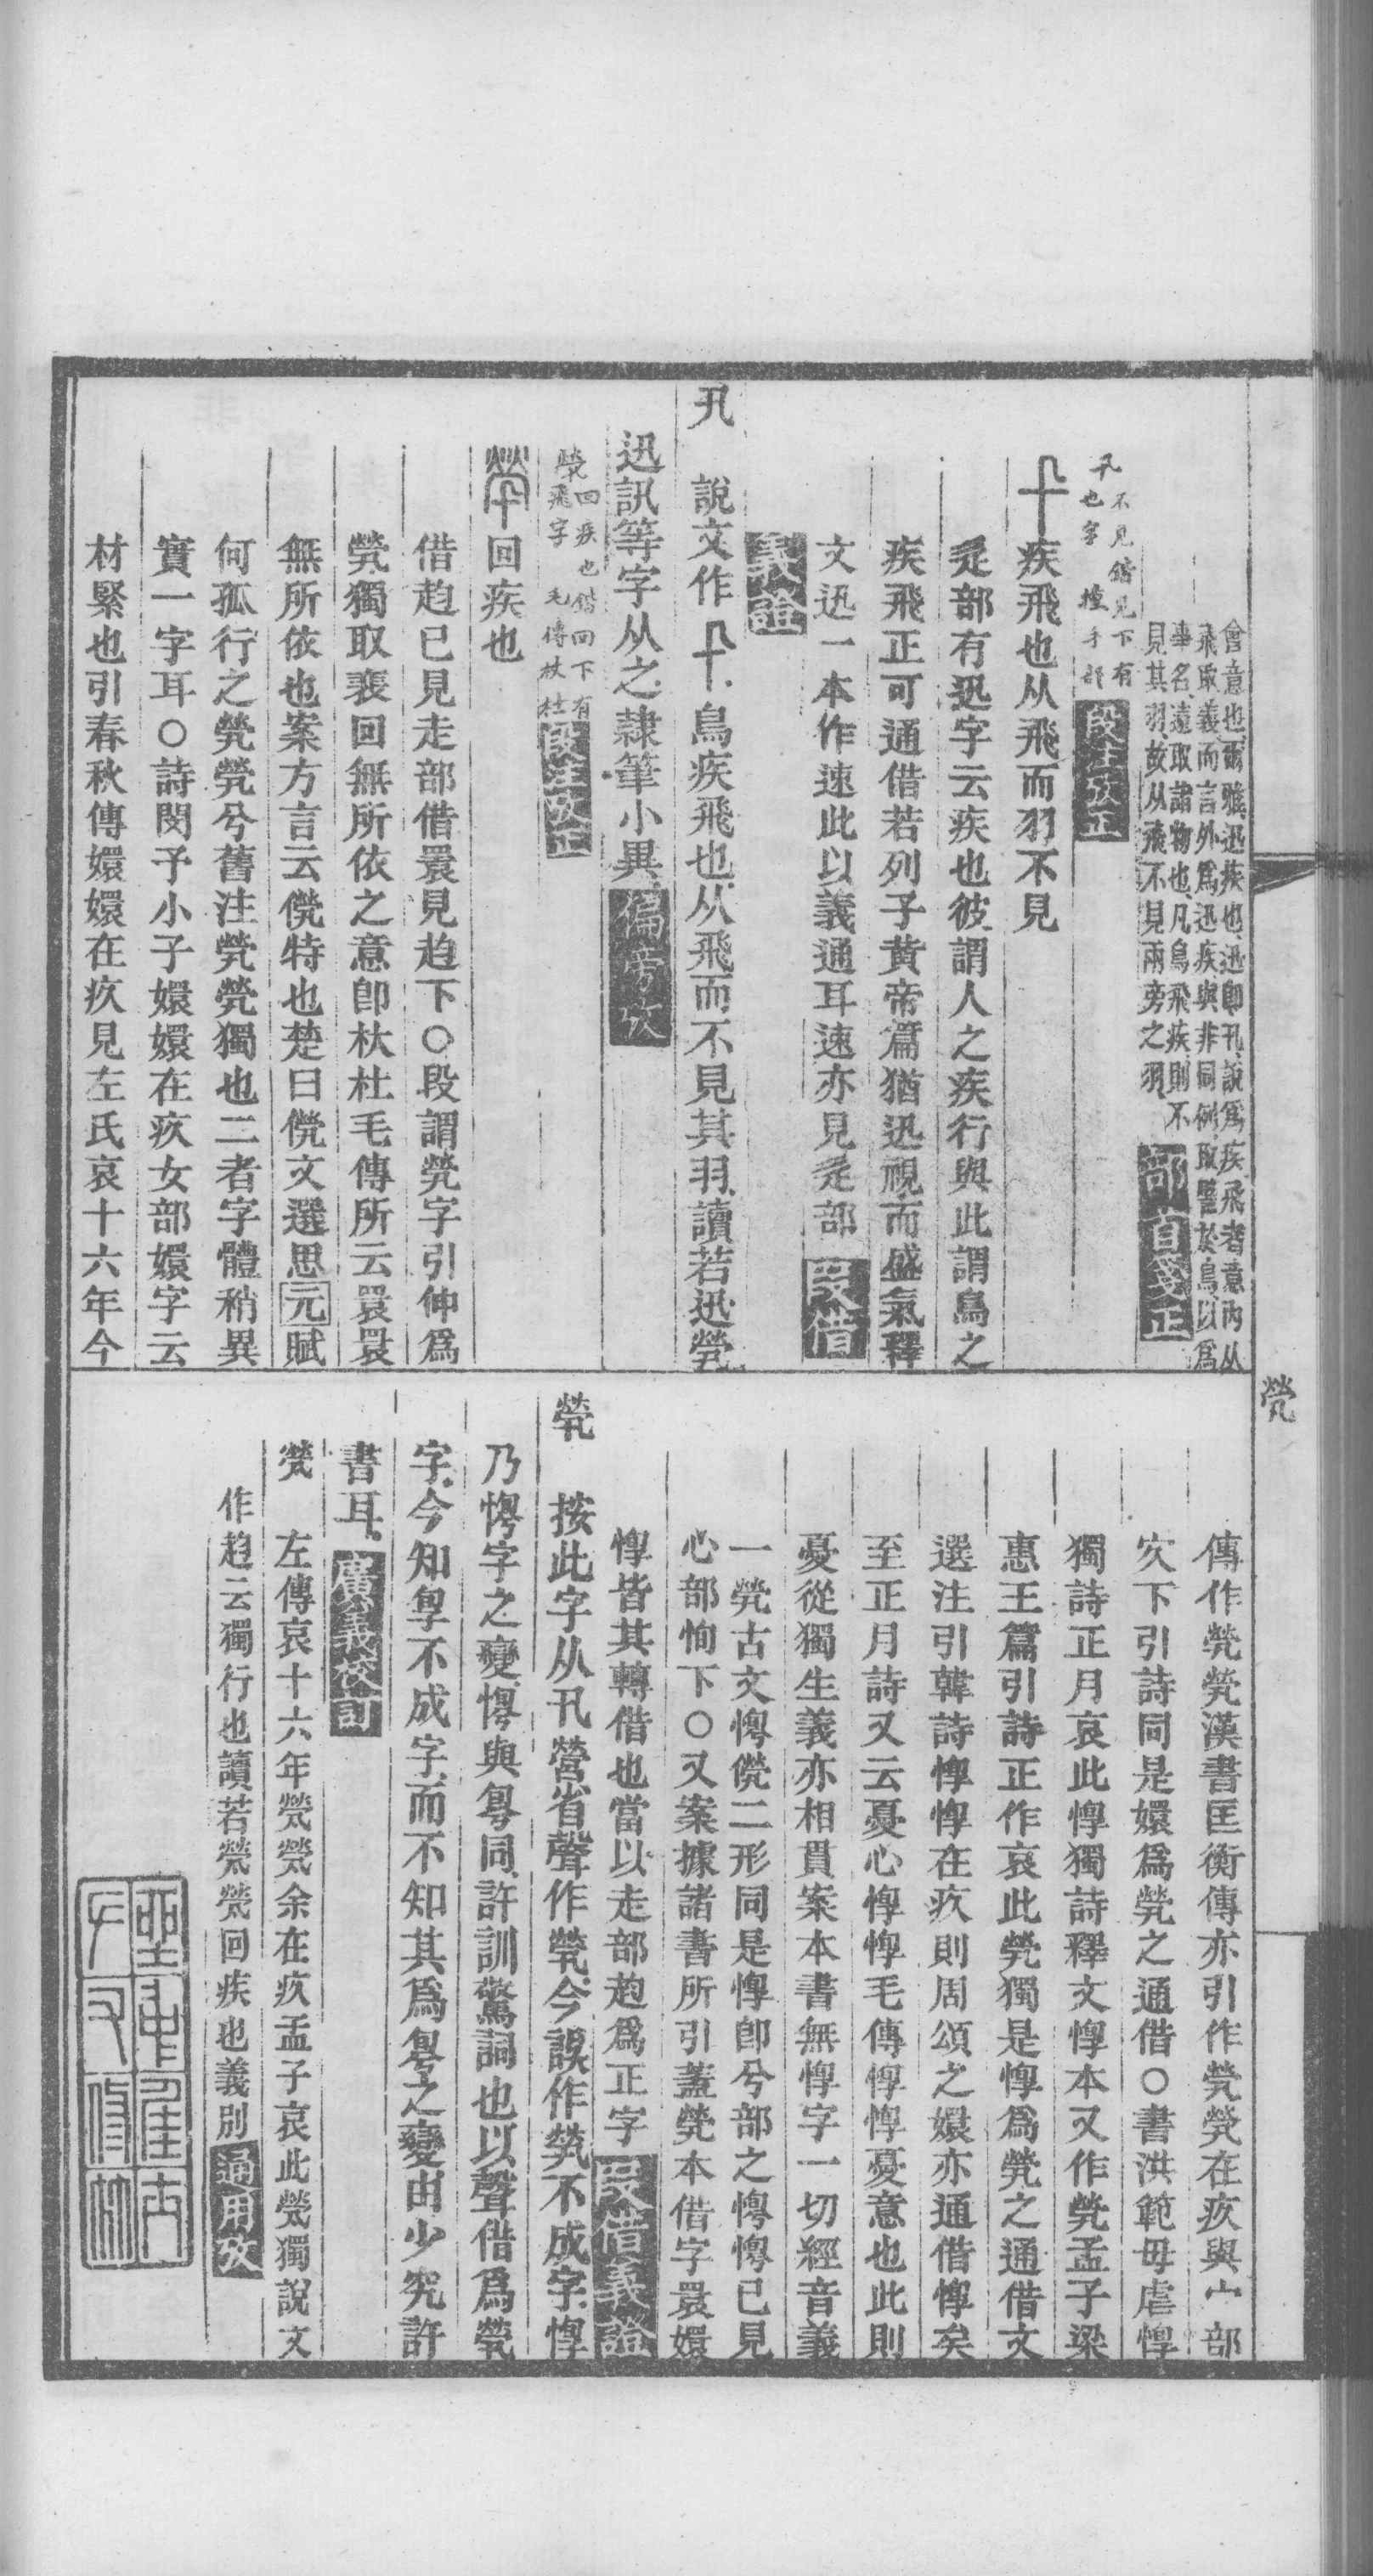 會意也、爾雅迅疾也、迅卽卂、說爲疾飛者、意內从
飛取義而言外爲迅疾、與非同例、取譬於鳥、以爲
事名、遠取諸物也、凡鳥飛疾、則不
見其羽、故从飛不見兩旁之羽、 部首箋正
卂不見鍇見下有
也字 手部 段注攷正
疾飛也从飛而羽不見
辵部有迅字云疾也彼謂人之疾行與此謂鳥之
疾飛正可通借若列子黃帝篇猶迅視而盛氣釋
文迅一本作速此以義通耳速亦見辵部 段借
義證
卂 說文作 、鳥疾飛也、从飛而不見其羽、讀若迅、煢
迅訊等字从之、隸筆小異、 偏旁攷
煢回疾也鍇回下有
飛字 毛傳杕杜 段注攷正
回疾也
借趋已見走部借睘見趋下○段謂煢字引伸爲
煢獨取裵回無所依之意卽杕杜毛傳所云睘睘
無所依也案方言云㷀特也楚曰㷀文選思元賦
何孤行之煢煢兮舊注煢煢獨也二者字體稍異
實一字耳○詩閔予小子嬛嬛在疚女部嬛字云
材緊也引春秋傳嬛嬛在疚見左氏哀十六年今
煢
傳作煢煢漢書匡衡傳亦引作煢煢在疚與宀部
㝌下引詩同是嬛爲煢之通借○書洪範毋虐惸
獨詩正月哀此惸獨詩釋文惸本又作煢孟子梁
惠王篇引詩正作哀此煢獨是惸爲煢之通借文
選注引韓詩惸惸在疚則周頌之嬛亦通借惸矣
至正月詩又云憂心惸惸毛傳惸惸憂意也此則
憂從獨生義亦相貫案本書無惸字一切經音義
一煢古文惸㷀二形同是惸卽兮部之㥪㥪已見
心部恂下○又案據諸書所引蓋煢本借字睘嬛
惸皆其轉借也當以走部趋爲正字 段借義證
煢 按此字从卂營省聲作煢、今誤作㷀不成字、惸
乃㥪字之變、㥪與㝁同、許訓驚詞也以聲借爲煢
字、今知㝁不成字、而不知其爲㝁之變由少究許
書耳、 廣義校訂
煢 左傳哀十六年煢煢余在疚孟子哀此煢獨說文
作趋云獨行也讀若煢煢回疾也義別 通用攷